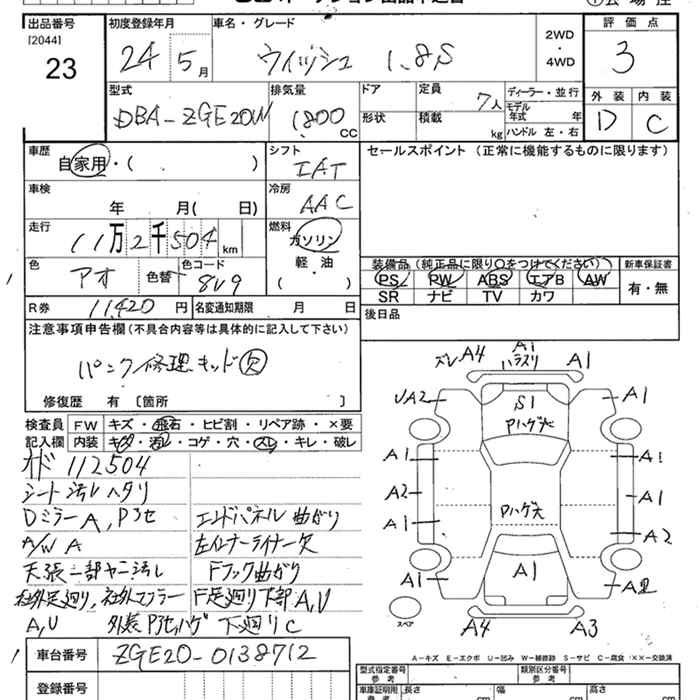 出品番号
[2044]
23
初度登録年月
24 5月
車名・グレード
ウィッシュ 1.8S
2WD
・
4WD
評価点
3
型式
DBA-ZGE20W
排気量
1800 CC
ドア
形状
定員
7人
積載
kg
ディーラー・並行
モデル年式 年
ハンドル 左・右
外装 内装
D C
車歴
自家用・( )
シフト
IAT
セールスポイント(正常に機能するものに限ります)
車検
年 月( 日)
冷房
AAC
走行
11万2千504km
燃料
ガソリン
軽・油
( )
色
アオ
色替
色コード
8V9
装備品(純正品に限り○をつけてください)
PS PW ABS エアB AW
SR ナビ TV カワ
新車保証書
有・無
R券
11,420円
名変通知期限 月 日
後日品
注意事項申告欄(不具合内容等は具体的に記入して下さい)
パンク修理キッド欠
修復歴 有〔箇所 〕
検査員記入欄
FW キズ・飛石・ヒビ割・リペア跡・×要
内装 キズ・汚れ・コゲ・穴・スレ・キレ・破レ
112504
シート汚レヘタリ
DミラーA,Pヨセ
A/W A
天張一部ヤニ汚レ
社外足廻り,社外マフラー
A,U 外装Pヨセ,ハゲ 下廻りC
エンドパネル曲がり
左インナーライナー欠
Fフック曲がり
F足廻り下部A,U
ズレ A4
A1
ハラスリ
A1
UA2
A1
S1
Pハゲ大
A1
A1
A2
A1
Pハゲ大
A1
A2
A1
A1
A2
スペア
A4
A3
A-キズ E-エクボ U-凹み W-補修跡 S-サビ C-腐食 ××-交換済
車台番号
ZGE20-0138712
登録番号
型式指定番号
参考
類別区分番号
参考
車庫証明用
参考
長さ cm
幅 cm
高さ cm